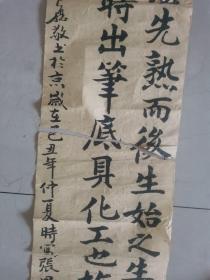 先熟而後生始之生
時出筆底具化工也
敬書於京歲在己丑年仲夏時寓張